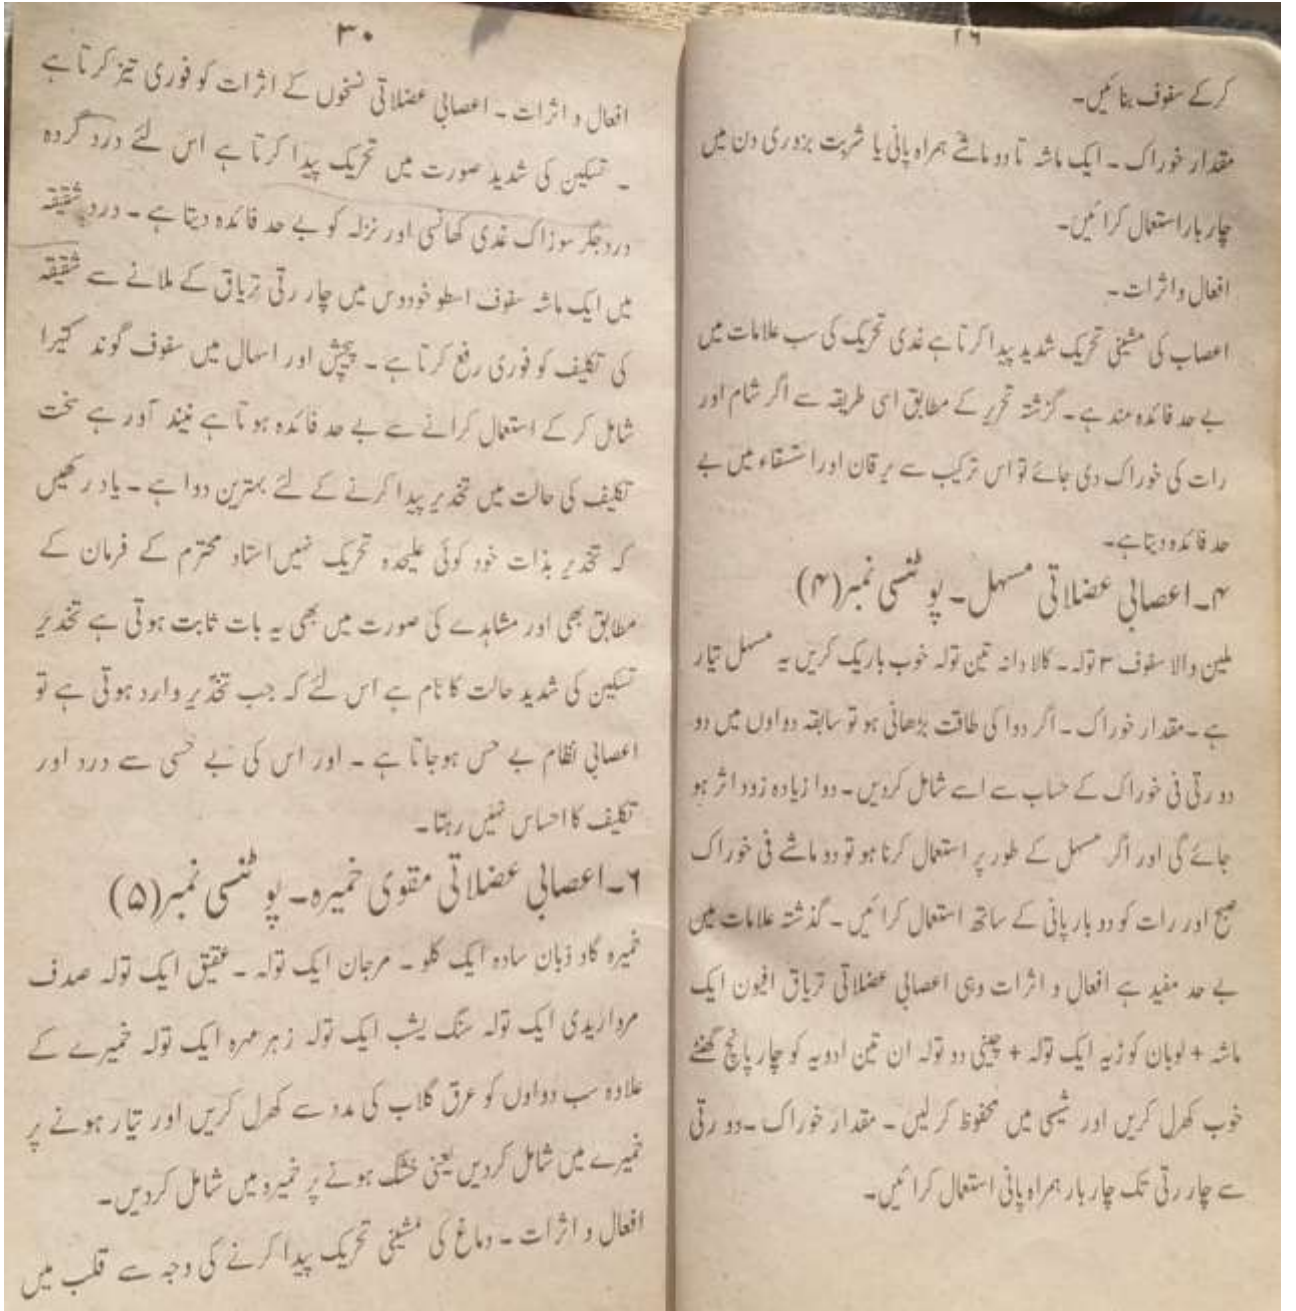 ۲۹
کر کے سفوف بنائیں۔
مقدار خوراک ۔ ایک ماشہ تا دو ماشے ہمراہ پانی یا شربت بزوری دن میں
چار بار استعمال کرائیں۔
افعال و اثرات ۔
اعصاب کی مشینی تحریک شدید پیدا کرتا ہے غدی تحریک کی سب علامات میں
بے حد فائدہ مند ہے ۔ گزشتہ تحریر کے مطابق اسی طریقہ سے اگر شام اور
رات کی خوراک دی جائے تو اس ترکیب سے یرقان اور استسقاء میں بے
حد فائدہ دیتا ہے۔
۴۔ اعصابی عضلاتی مسہل ۔ پوٹنسی نمبر (۴)
ملین والا سفوف ۳ تولہ ۔ کالا دانہ تین تولہ خوب باریک کریں یہ مسہل تیار
ہے ۔ مقدار خوراک ۔ اگر دوا کی طاقت بڑھانی ہو تو سابقہ دواوں میں دو
دو رتی فی خوراک کے حساب سے اسے شامل کردیں ۔ دوا زیادہ زود اثر ہو
جائے گی اور اگر مسہل کے طور پر استعمال کرنا ہو تو دو ماشے فی خوراک
صبح اور رات کو دو بار پانی کے ساتھ استعمال کرائیں ۔ گذشتہ علامات میں
بے حد مفید ہے افعال و اثرات وہی اعصابی عضلاتی تریاق افیون ایک
ماشہ + لوبان کوڑیہ ایک تولہ + چینی دو تولہ ان تین ادویہ کو چار پانچ گھنٹے
خوب کھرل کریں اور شیشی میں محفوظ کرلیں ۔ مقدار خوراک ۔ دو رتی
سے چار رتی تک چار بار ہمراہ پانی استعمال کرائیں۔
۳۰
افعال و اثرات ۔ اعصابی عضلاتی نسخوں کے اثرات کو فوری تیز کرتا ہے
۔ تسکین کی شدید صورت میں تحریک پیدا کرتا ہے اس لئے درد گردہ
درد جگر سوزاک غدی کھانسی اور نزلہ کو بے حد فائدہ دیتا ہے ۔ درد شقیقہ
میں ایک ماشہ سفوف اسطوخودوس میں چار رتی تریاق کے ملانے سے شقیقہ
کی تکلیف کو فوری رفع کرتا ہے ۔ پیچش اور اسہال میں سفوف گوند کتیرا
شامل کر کے استعمال کرانے سے بے حد فائدہ ہوتا ہے نیند آور ہے سخت
تکلیف کی حالت میں تخدیر پیدا کرنے کے لئے بہترین دوا ہے ۔ یاد رکھیں
کہ تخدیر بذات خود کوئی علیحدہ تحریک نہیں استاد محترم کے فرمان کے
مطابق بھی اور مشاہدے کی صورت میں بھی یہ بات ثابت ہوتی ہے تخدیر
تسکین کی شدید حالت کا نام ہے اس لئے کہ جب تخدیر وارد ہوتی ہے تو
اعصابی نظام بے حس ہوجاتا ہے ۔ اور اس کی بے حسی سے درد اور
تکلیف کا احساس نہیں رہتا۔
۶۔ اعصابی عضلاتی مقوی خمیرہ ۔ پوٹنسی نمبر (۵)
خمیرہ گاو زبان سادہ ایک کلو ۔ مرجان ایک تولہ ۔ عقیق ایک تولہ صدف
مرواریدی ایک تولہ سنگ یشب ایک تولہ زہر مہرہ ایک تولہ خمیرے کے
علاوہ سب دواوں کو عرق گلاب کی مدد سے کھرل کریں اور تیار ہونے پر
خمیرے میں شامل کردیں یعنی خشک ہونے پر خمیرہ میں شامل کردیں۔
افعال و اثرات ۔ دماغ کی مشینی تحریک پیدا کرنے کی وجہ سے قلب میں